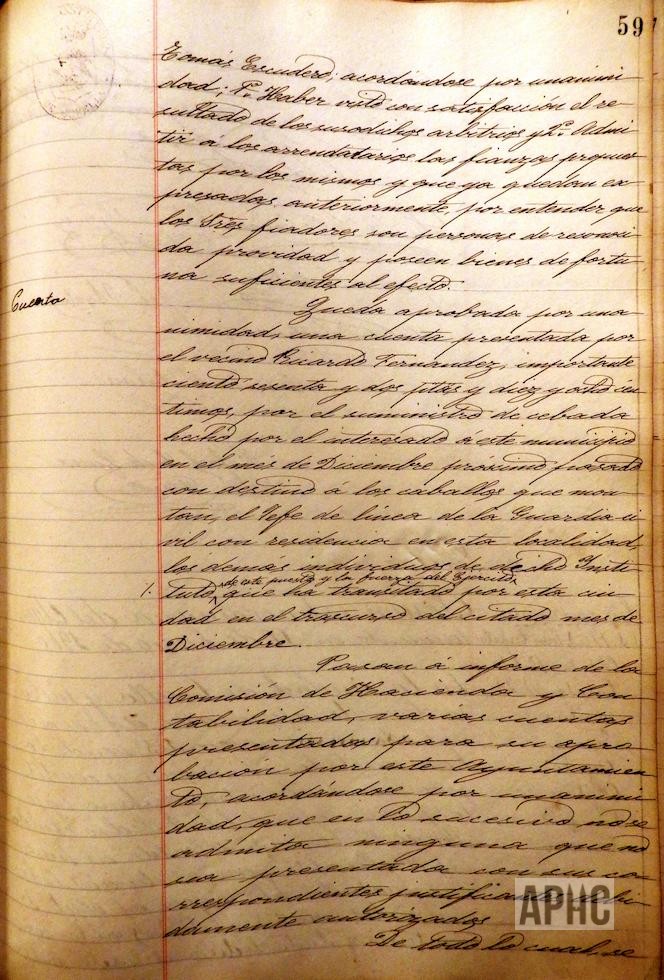 59
Tomás Escudero; acordándose por unanimi-
dad; 1º Haber visto con satisfacción el re-
sultado de los susodichos arbitrios y 2º Admi-
tir á los arrendatarios las fianzas propues-
tas por los mismos y que ya quedan ex-
presadas anteriormente, por entender que
los tres fiadores son personas de reconoci-
da providad y poseen bienes de fortu-
na suficientes al efecto.
Cuenta
Queda aprobada por una-
nimidad, una cuenta presentada por
el vecino Ricardo Fernandez, importante
ciento sesenta y dos ptas y diez y ocho cén-
timos, por el suministro de cebada
hecho por el interesado á este municipio
en el més de Diciembre próximo pasado
con destino á los caballos que mon-
tan, el Jefe de linea de la Guardia ci-
vil con residencia en esta localidad,
los demas individuos de dicho Insti-
de este puesto y la fuerza del Ejercito
tuto que ha transitado por esta ciu-
dad en el trascurso del citado mes de
Diciembre.
Pasan á informe de la
Comisión de Hacienda y Con-
tabilidad, varias cuentas
presentadas para su apro-
bación por este Ayuntamien-
to, acordándose por unanimi-
dad, que en lo sucesivo no se
admita ninguna que no
sea presentada con sus co-
rrespondientes justificantes debi-
damente autorizados
De todo lo cual, se
APHC